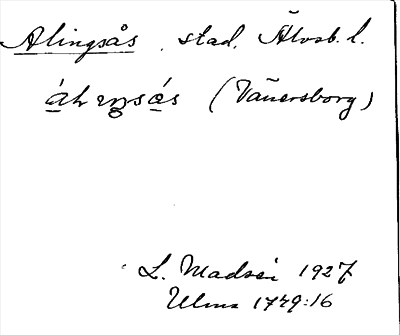 Alingsås. stad. Älvsb. l.
(Vänersborg)
L. Madsén 1927
Ulma 1749:16